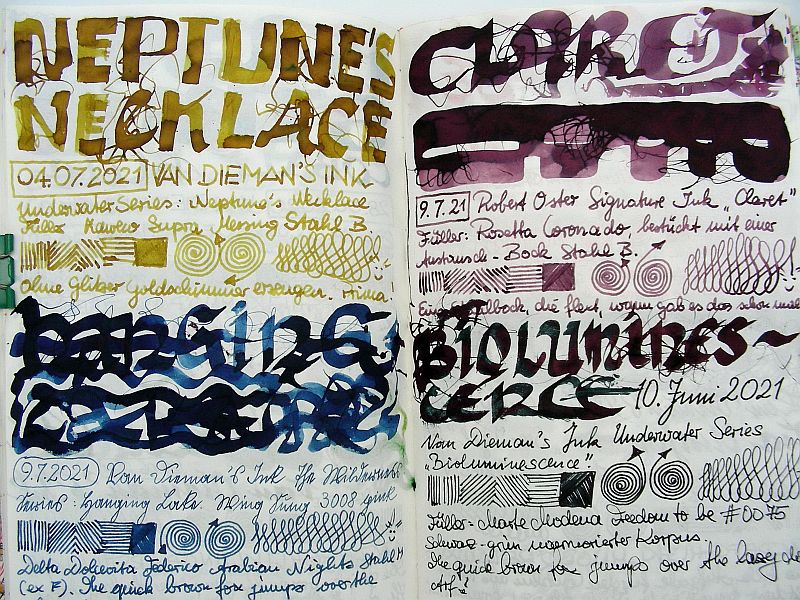 NEPTUNE'S
NECKLACE
04.07.2021 VAN DIEMAN'S INK
Underwater Series: Neptune's Necklace
Füller Kaweco Supra Messing Stahl B.
Ohne Glitzer Goldschimmer erzeugen. Prima!
HANGING
LAKE
9.7.2021 Van Dieman's Ink The Wilderness
Series: Hanging Lake. Wing Sung 3008 pink
Delta Dolcevita Federico Arabian Nights Stahl M
(ex F). The quick brown fox jumps over the
CLARET
9.7.21 Robert Oster Signature Ink „Claret"
Füller: Rosetta Coronado, bestückt mit einer
Austausch - Bock Stahl B.
Eine Stahlbock, die flext, wann gab es das schon mal
BIOLUMINES~
CENCE 10. Juni 2021
Van Dieman's Ink Underwater Series
„Bioluminescence".
Füller: Marte Modena Freedom to be #0075
Schwarz-grün marmorierter Korpus.
The quick brown fox jumps over the lazy